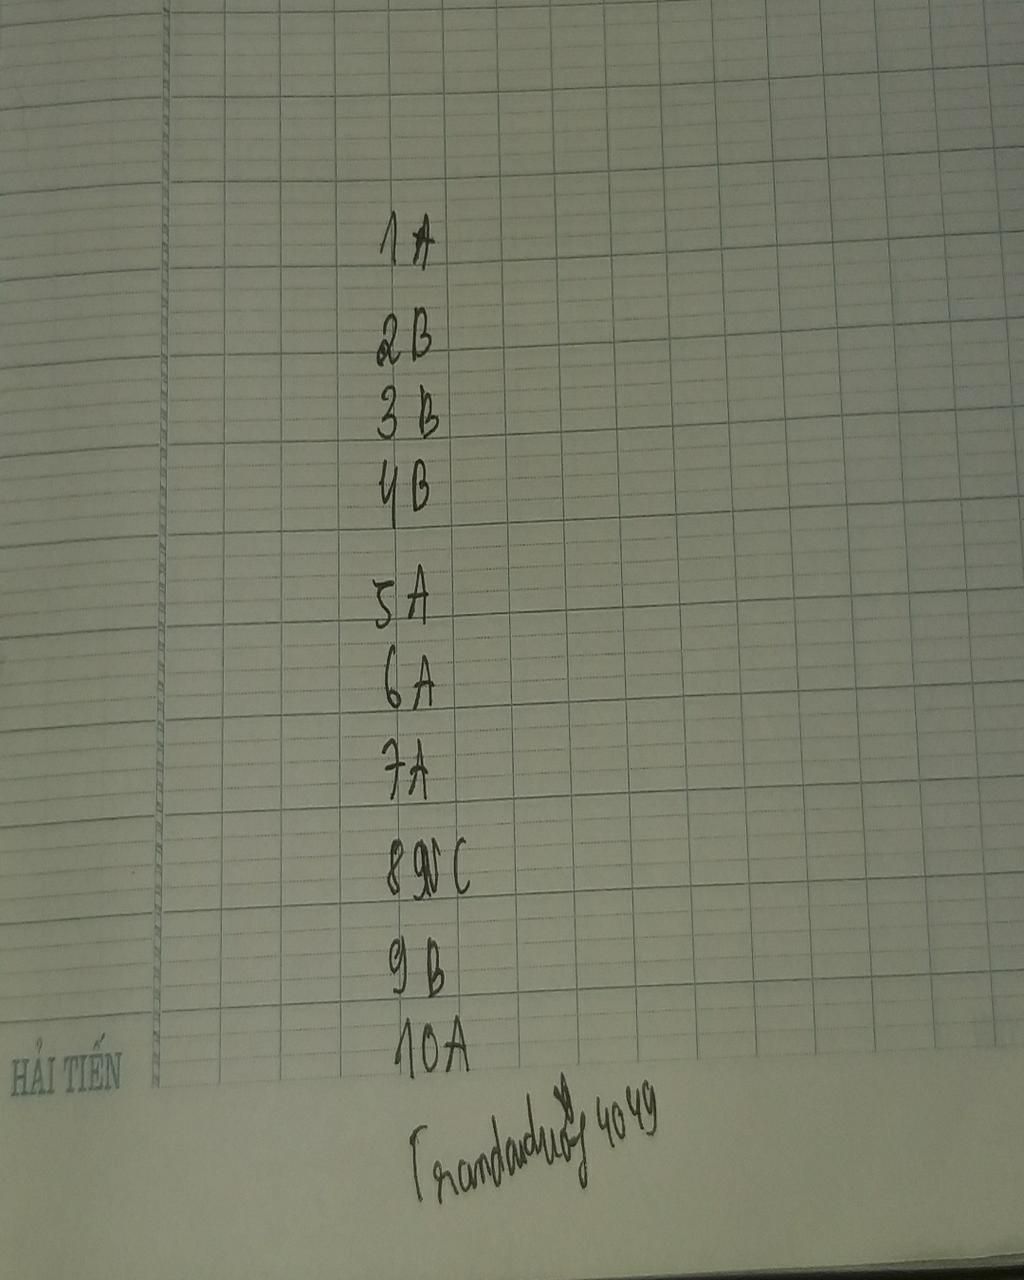 1 A
2 B
3 B
4 B
5 A
6 A
7 A
8 C
9 B
10 A
HẢI TIẾN
4049